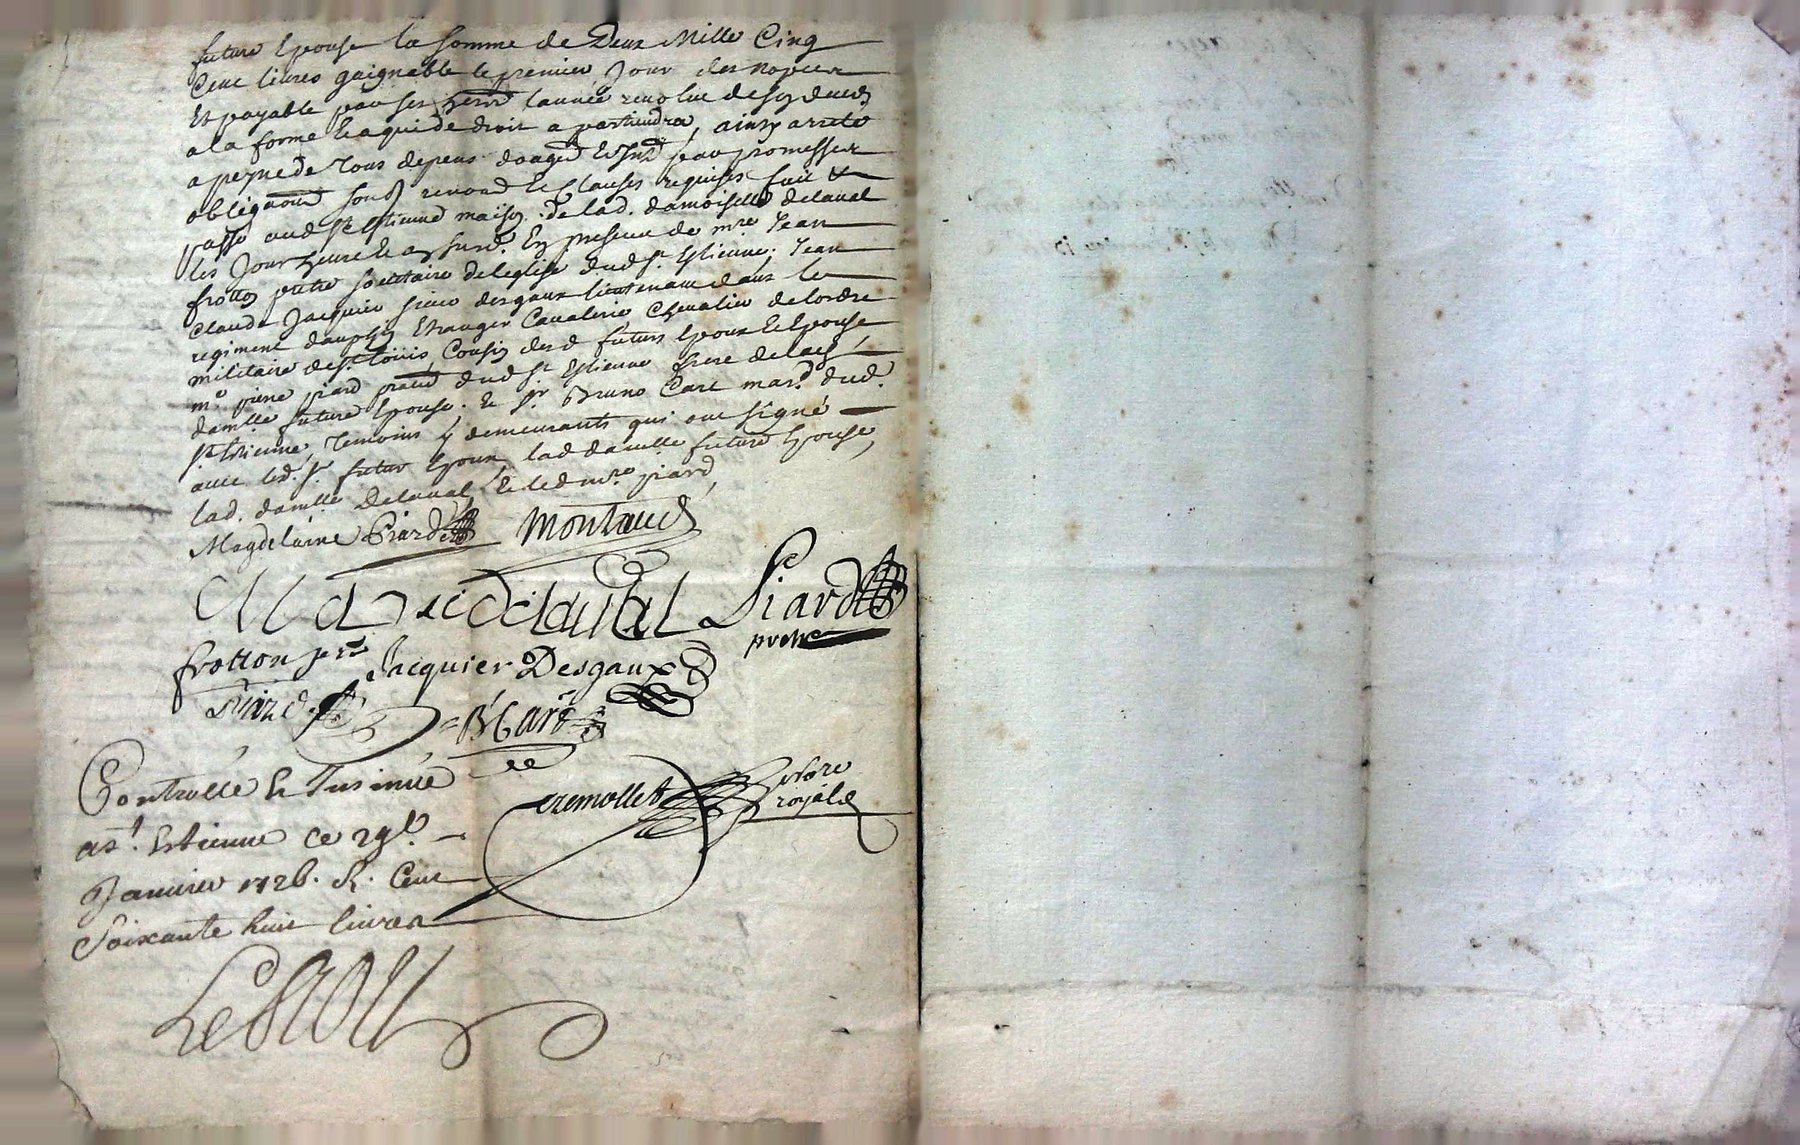 future Epouse la somme de Deux Mille Cinq
Cent livres gaignable le premier Jour des nopces
Et payable par ses heritr l'année revolue de son deceds
a la forme & a qui de droit apartiendra, ainsy arreté
a peyne de tous depens domages & par promesses
obligations renond & Clauses requises fait &
passé aud St Estienne maison de lad. damoiselle delaval
les Jour heure & an susd. En presence de mre Jean
frotton pretre societaire de leglise dud St Estienne, Jean
Claude Jacquier sieur desgaux lieutenant dans le
regiment dauphin Etranger Cavalerie Chevalier de lordre
militaire de St. Louis Cousin desd futurs Epoux & Epouse
me piere piard dud St Estienne frere de lad
damlle future Epouse. & Sr Bruno Caré mard dud.
St Estienne, Temoins y demeurants qui ont signé
avec led. Sr. futur Epoux, lad damlle future Epouse,
lad. damlle Delaval, & led mre piard,
Magdelaine Piard Montaud
Delaval Piard
pretre
frotton ptre Jacquier Desgaux
Piard. B Caré
Controllé & Insinué
a St. Estienne ce 29e.
Janvier 1726. R. Cent
Soixante huit livres
Cremollet nore
royal